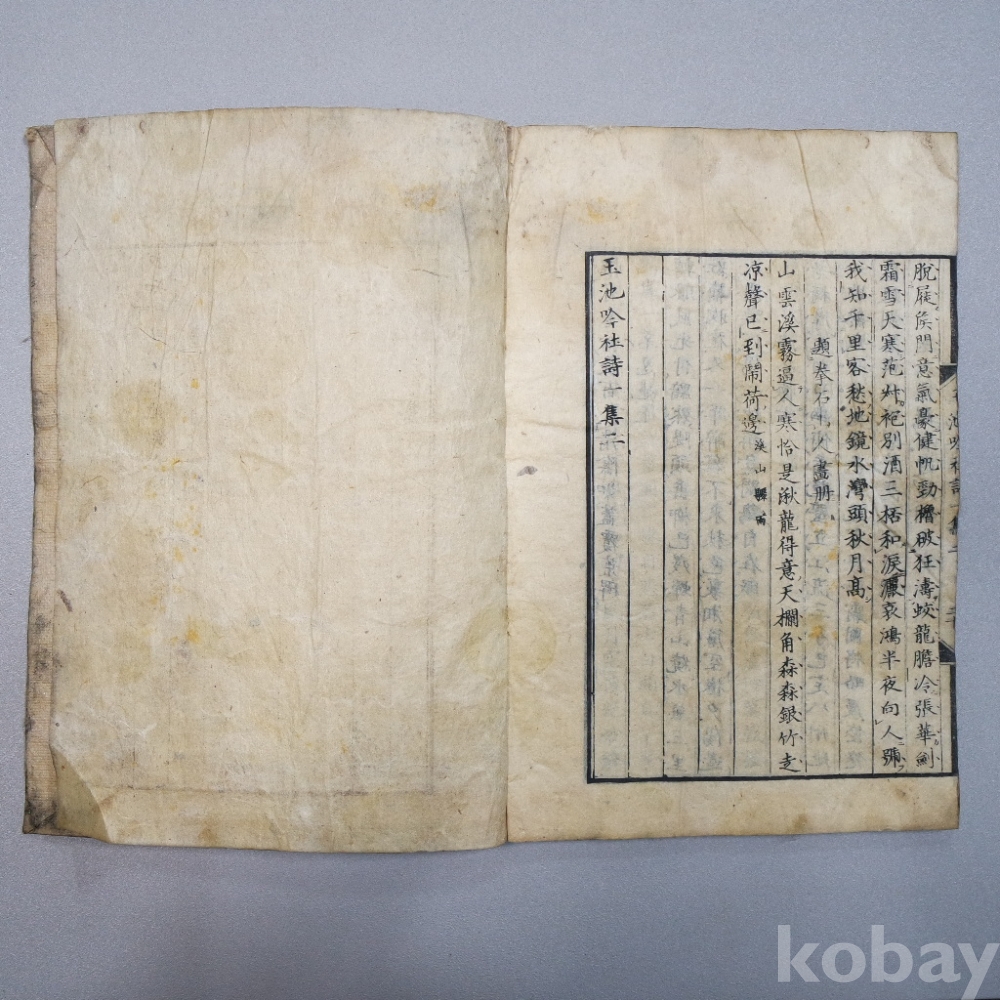 脫屣侯門意氣豪健帆勁櫓破狂濤蛟龍膽冷張華劍
霜雪天寒范叔袍別酒三桮和淚灑哀鴻半夜向人號
我知千里客愁地鏡水灣頭秋月高
題拳石山人畫冊
山雲溪霧逼人寒恰是湫龍得意天欄角森森銀竹走
凉聲已到鬧荷邊 溪山驟雨
玉池吟社詩一集二
玉池吟社詩一集二
kobay